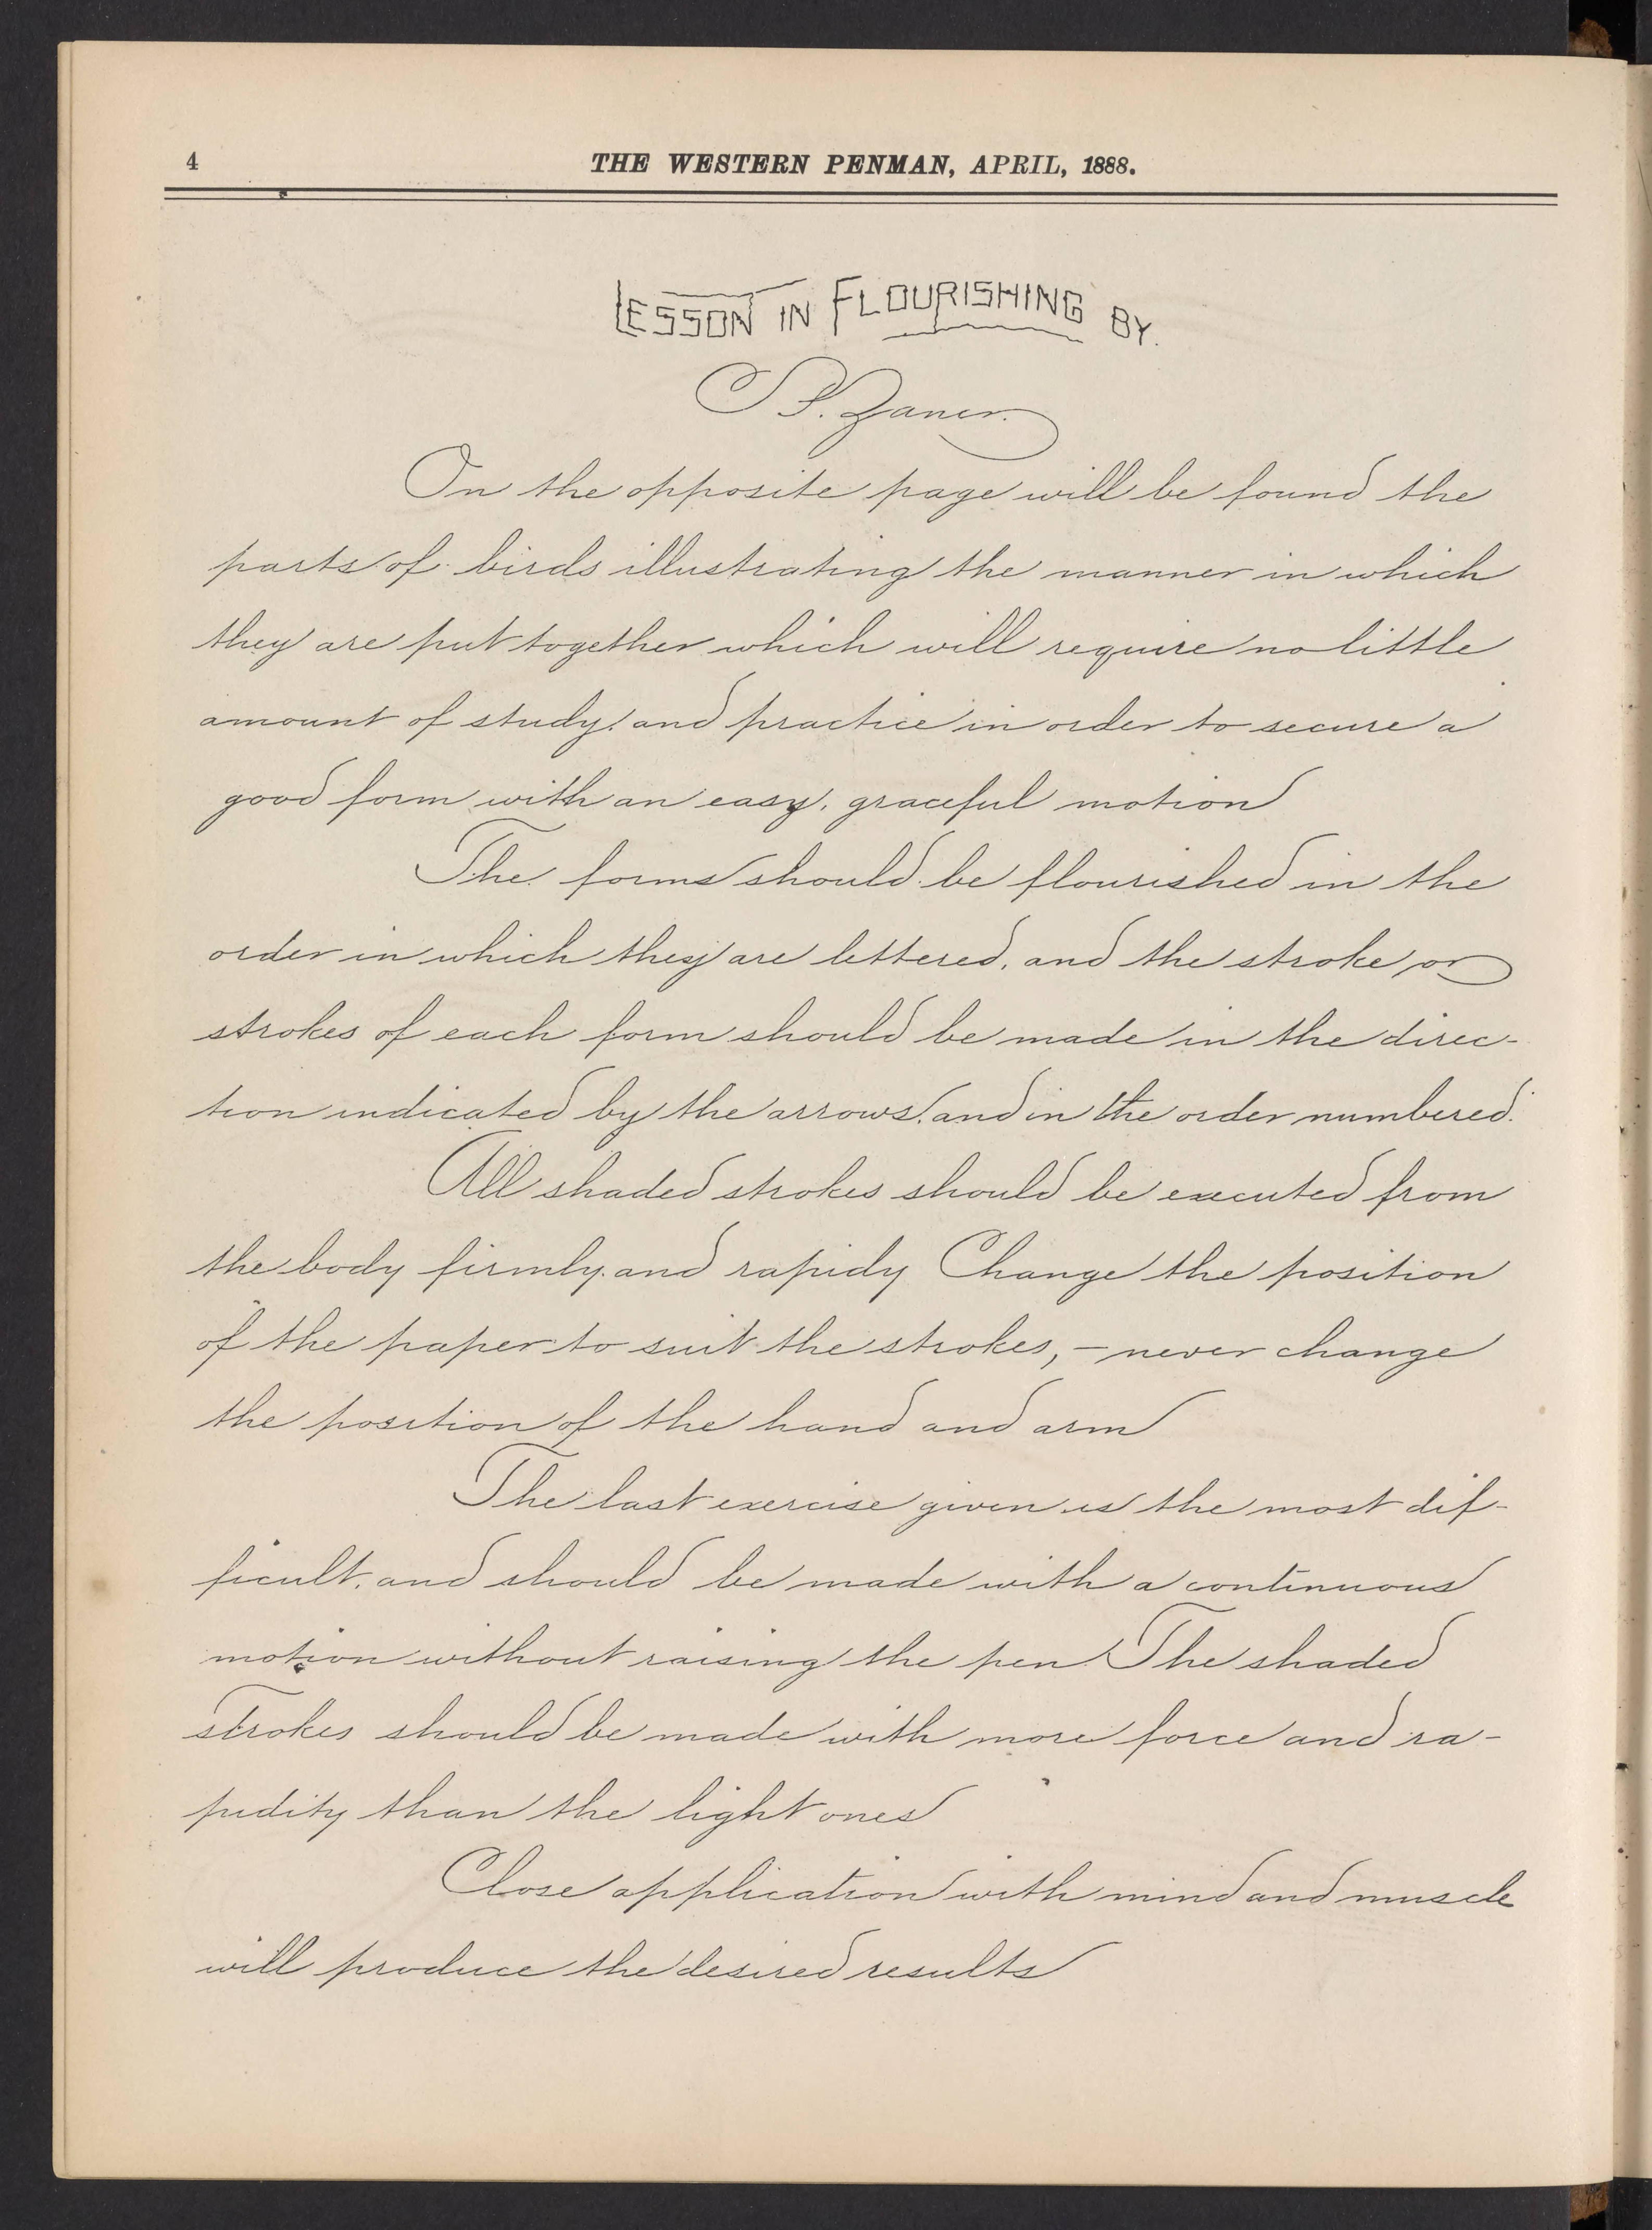 4
THE WESTERN PENMAN, APRIL, 1888.
LESSON IN FLOURISHING BY.
C P. Zaner.
On the opposite page will be found the
parts of birds illustrating the manner in which
they are put together which will require no little
amount of study, and practice in order to secure a
good form with an easy, graceful motion
The forms should be flourished in the
order in which they are lettered, and the stroke or
strokes of each form should be made in the direc-
tion indicated by the arrows, and in the order numbered.
All shaded strokes should be executed from
the body firmly and rapidy Change the position
of the paper to suit the strokes, - never change
the position of the hand and arm
The last exercise given is the most dif-
ficult, and should be made with a continuous
motion without raising the pen. The shaded
strokes should be made with more force and ra-
pidity than the light ones
Close application with mind and muscle
will produce the desired results